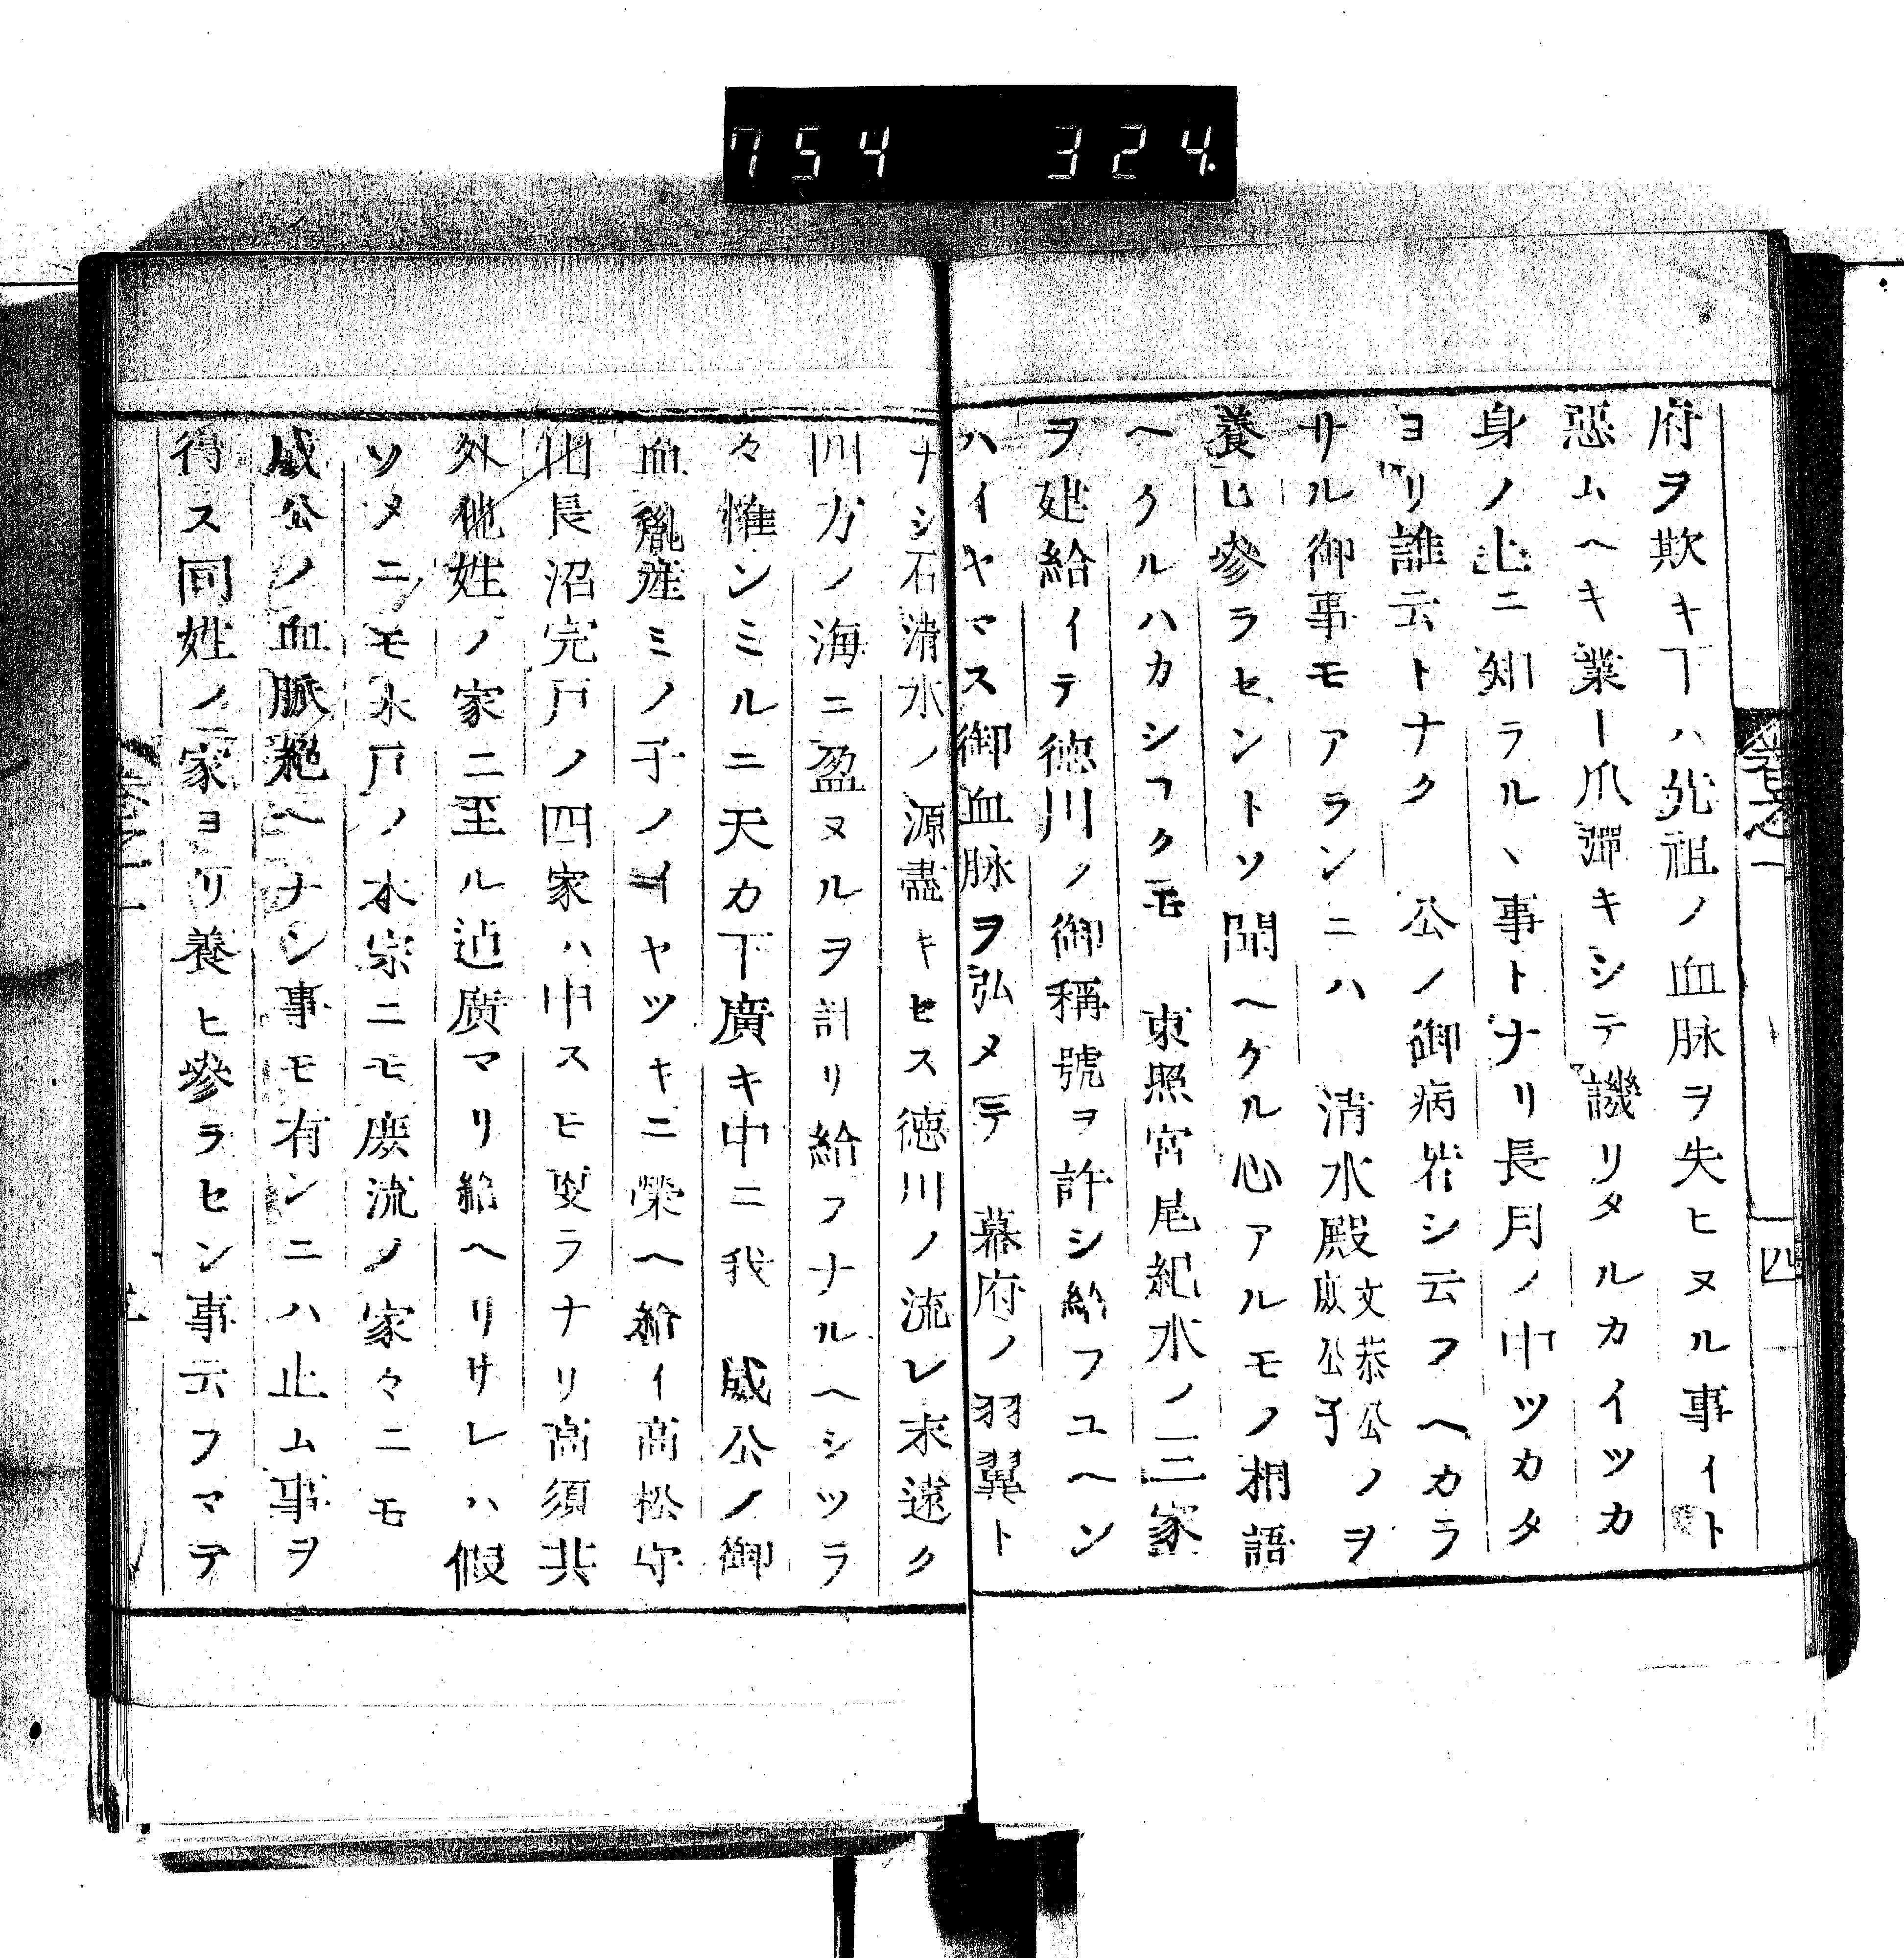 754 324
卷之一
四
府ヲ欺キ下ハ先祖ノ血脉ヲ失ヒヌル事イト
惡ムヘキ業ー爪彈キシテ譏リタルカイツカ
身ノ上ニ知ラルヽ事トナリ長月ノ中ツカタ
ヨリ誰云トナク 公ノ御病若シ云フヘカラ
サル御事モアランニハ 清水殿文恭公ノ献公子ヲ
養ヒ參ラセントソ聞ヘケル心アルモノ相語
ヘケルハカシコクモ 東照宮尾紀水ノ三家
ヲ建給イテ徳川ノ御稱號ヲ許シ給フユヘン
ハイヤマス御血脉ヲ弘メテ 幕府ノ羽翼ト
ナシ石清水ノ源盡キセス徳川ノ流レ末遠ク
四方ノ海ニ盈ヌルヲ計リ給フナルヘシツラ
々惟ンミルニ天カ下廣キ中ニ我 威公ノ御
血胤産ミノ子ノイヤツキニ榮ヘ給イ高松守
山長沼宍戸ノ四家ハ申スヒ更ラナリ高須共
外他姓ノ家ニ至ル迠廣マリ給ヘリサレハ假
ソメニモ水戸ノ本宗ニモ庶流ノ家々ニモ
威公ノ血脈絶ヘナン事モ有ンニハ止ム事ヲ
得ス同姓ノ家ヨリ養ヒ參ラセン事云フマテ